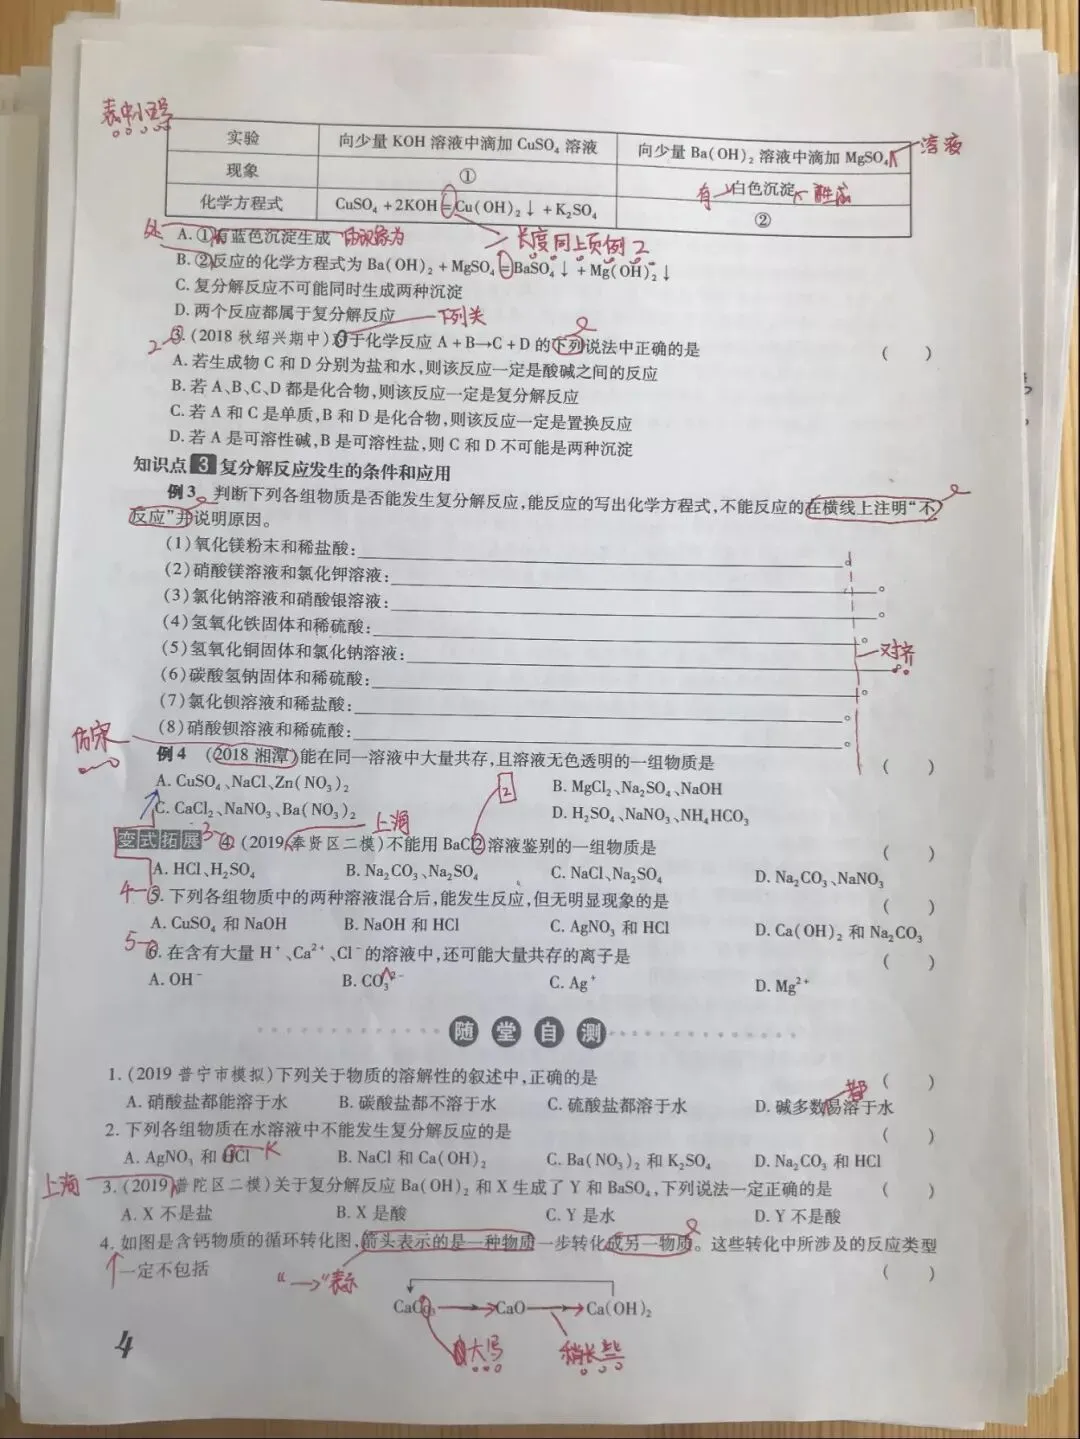 表中小五号
实验 向少量 KOH 溶液中滴加 CuSO₄ 溶液 向少量 Ba(OH)₂ 溶液中滴加 MgSO₄ 溶液
现象 ① 有 白色沉淀 生成
化学方程式 CuSO₄+2KOH=Cu(OH)₂↓+K₂SO₄ ②
处 A. ①有蓝色沉淀生成 的现象为 长度同上页例2
B. ②反应的化学方程式为 Ba(OH)₂+MgSO₄=BaSO₄↓+Mg(OH)₂↓
C. 复分解反应不可能同时生成两种沉淀
D. 两个反应都属于复分解反应 下列关
2 3. (2018 秋绍兴期中)对于化学反应 A+B→C+D 的下列说法中正确的是 ( )
A. 若生成物 C 和 D 分别为盐和水,则该反应一定是酸碱之间的反应
B. 若 A、B、C、D 都是化合物,则该反应一定是复分解反应
C. 若 A 和 C 是单质,B 和 D 是化合物,则该反应一定是置换反应
D. 若 A 是可溶性碱,B 是可溶性盐,则 C 和 D 不可能是两种沉淀
知识点 3 复分解反应发生的条件和应用
例3 判断下列各组物质是否能发生复分解反应,能反应的写出化学方程式,不能反应的在横线上注明“不
反应”并说明原因。
(1)氧化镁粉末和稀盐酸:
(2)硝酸镁溶液和氯化钾溶液: 。
(3)氯化钠溶液和硝酸银溶液: 。
(4)氢氧化铁固体和稀硫酸: 。
(5)氢氧化铜固体和氯化钠溶液: 。 对齐
(6)碳酸氢钠固体和稀硫酸: 。
(7)氯化钡溶液和稀盐酸: 。
(8)硝酸钡溶液和稀硫酸: 。
仿宋 例4 (2018 湘潭)能在同一溶液中大量共存,且溶液无色透明的一组物质是 ( )
A. CuSO₄、NaCl、Zn(NO₃)₂ B. MgCl₂、Na₂SO₄、NaOH
C. CaCl₂、NaNO₃、Ba(NO₃)₂ D. H₂SO₄、NaNO₃、NH₄HCO₃
2 上海
变式拓展 3 4. (2019 奉贤区二模)不能用 BaCl2 溶液鉴别的一组物质是 ( )
A. HCl、H₂SO₄ B. Na₂CO₃、Na₂SO₄ C. NaCl、Na₂SO₄ D. Na₂CO₃、NaNO₃
4 5. 下列各组物质中的两种溶液混合后,能发生反应,但无明显现象的是 ( )
A. CuSO₄ 和 NaOH B. NaOH 和 HCl C. AgNO₃ 和 HCl D. Ca(OH)₂ 和 Na₂CO₃
5 6. 在含有大量 H⁺、Ca²⁺、Cl⁻ 的溶液中,还可能大量共存的离子是 ( )
A. OH⁻ B. CO₃²⁻ C. Ag⁺ D. Mg²⁺
随堂自测
1. (2019 普宁市模拟)下列关于物质的溶解性的叙述中,正确的是 ( )
A. 硝酸盐都能溶于水 B. 碳酸盐都不溶于水 C. 硫酸盐都溶于水 D. 碱多数都易溶于水
2. 下列各组物质在水溶液中不能发生复分解反应的是 ( )
A. AgNO₃ 和 HCl K B. NaCl 和 Ca(OH)₂ C. Ba(NO₃)₂ 和 K₂SO₄ D. Na₂CO₃ 和 HCl
上海 3. (2019 普陀区二模)关于复分解反应 Ba(OH)₂ 和 X 生成了 Y 和 BaSO₄,下列说法一定正确的是 ( )
A. X 不是盐 B. X 是酸 C. Y 是水 D. Y 不是酸
4. 如图是含钙物质的循环转化图,箭头表示的是一种物质一步转化成另一物质。这些转化中所涉及的反应类型
一定不包括 “→”表示 ( )
CaCo₃→CaO→Ca(OH)₂
4 大写 稍长些